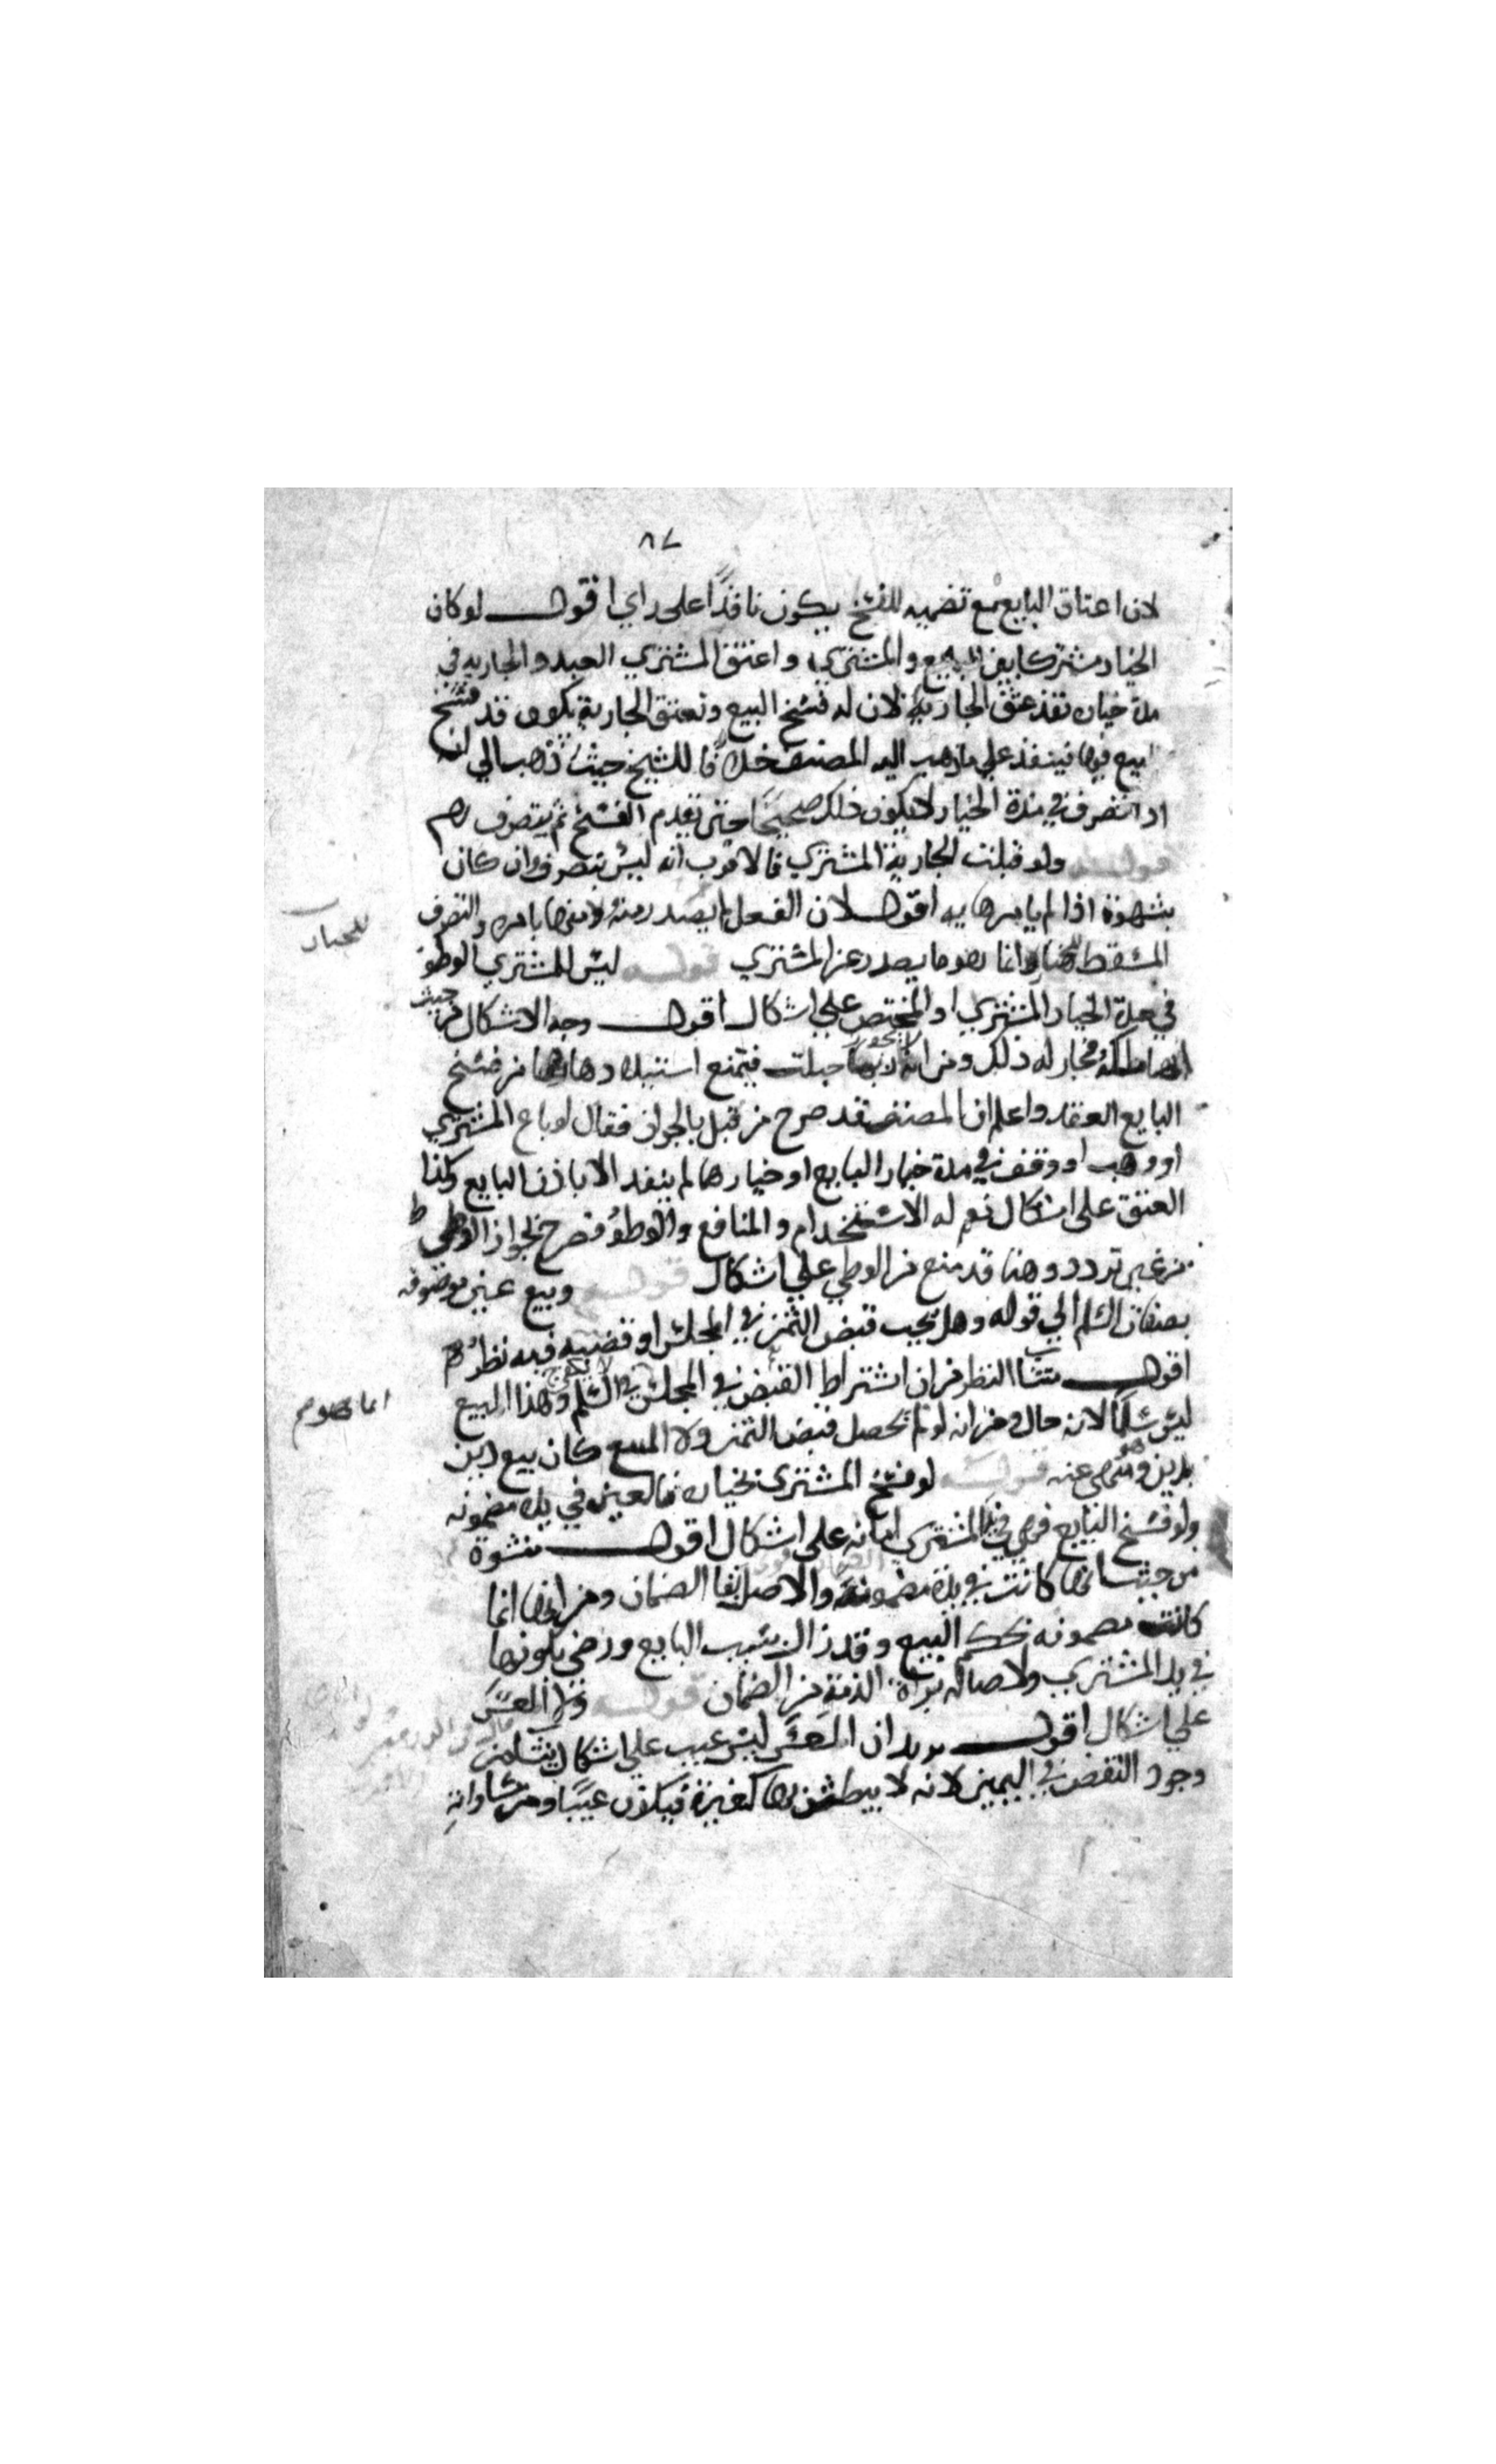 ٨٧
لان اعتاق البايع مع تضمنه للفسخ يكون نافذًا على راي اقول لو كان
الخيار مشتركا بين البايع والمشتري واعتق المشتري العبد والجاريه في
مدة خياره نفذ عتق الجارية لان له فسخ البيع وبعتق الجارية يكون قد فسخ
البيع فيها فينفذ على ما ذهب اليه المصنف خلافا للشيخ حيث ذهب الى انه
اذا تصرف في مدة الخيار لا يكون ذلك صحيحًا حتى تقدم الفسخ ثم يتصرف
قوله ولو قبلت الجارية المشتري فالاقرب انه ليس بتصرف وان كان
بشهوة اذا لم يامرها به اقول لان الفعل لم يصدر منه ولا منها بامره والتصرف
للخيار
المسقط للخيار انما هو ما يصدر عن المشتري قوله ليس للمشتري الوطؤ
في مدة الخيار المشترك او المختص على اشكال اقول وجه الاشكال من حيث
انها ملكه فجاز له ذلك ومن انه لا يجوز ربما حبلت فيمنع استيلادها من فسخ
البايع العقد واعلم ان المصنف قد صرح من قبل بالجواز فقال لو باع المشتري
او وهب او وقف في مدة خيار البايع او خيارهما لم ينفذ الا باذن البايع وكذا
العتق على اشكال نعم له الاستخدام والمنافع والوطؤ فصرح بجواز الوطي
من غير تردد وهنا قد منع من الوطي على اشكال قوله وبيع عين موصوفه
بصفات السلم الى قوله وهل يجب قبض الثمن في المجلس او قضيه فيه نظر
اقول ينشا النظر من ان اشتراط القبض في المجلس في السلم وهذا البيع
انما هو
ليس سلمًا لانه حال ومن انه لو لم يحصل قبض الثمن ولا المبيع كان بيع دين
بدين وهو منهي عنه قوله لو فسخ المشتري بخياره فالعين في يده مضمونه
ولو فسخ البايع فهي في يد المشتري امانه على اشكال اقول منشؤه
من حيث انها كانت في يده مضمونة والاصل بقا الضمان ومن انها انما
كانت مضمونه بحكم البيع وقد زال بسبب البايع ورضي بكونها
في يد المشتري ولاصاله براة الذمة من الضمان قوله ولا العسر
على اشكال اقول يريد ان العسر ليس بعيب على اشكال ينشا من
وجود النقض في اليمين لانه لا يبطش بها كغيره فيكون عيبًا ومن مساواته